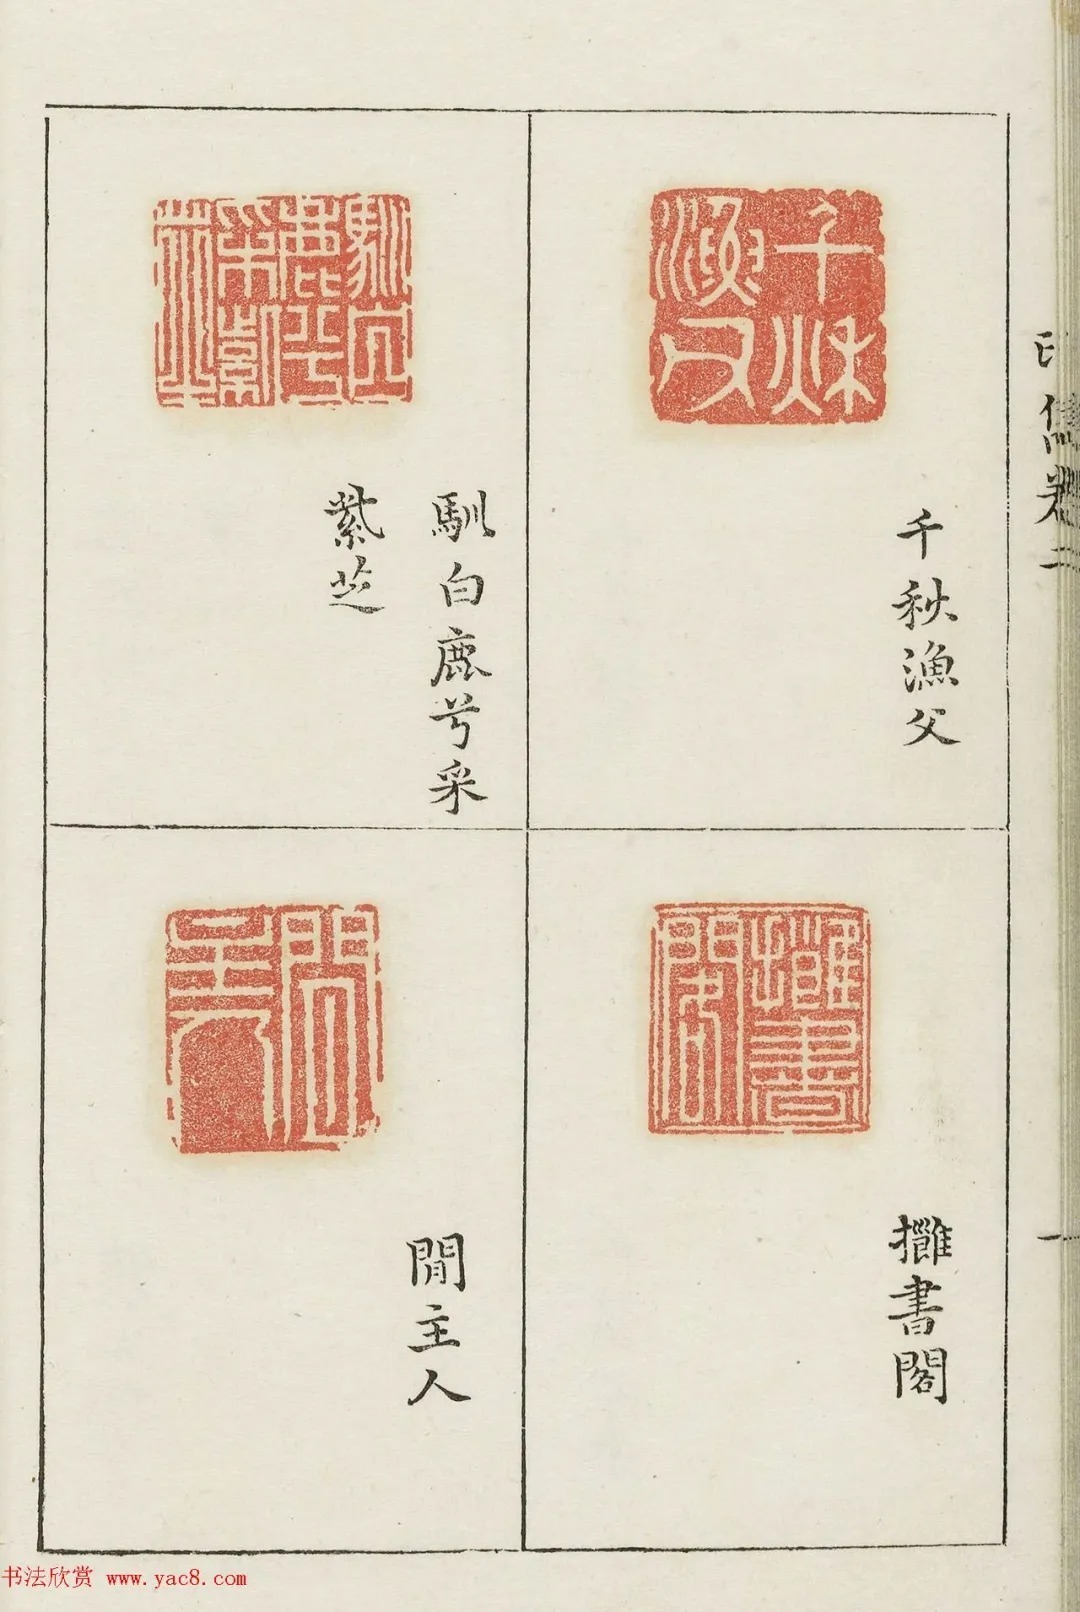 千秋漁父
攤書閣
馴白鹿兮采
紫芝
閒主人
卷二
一
书法欣赏 www.yac8.com